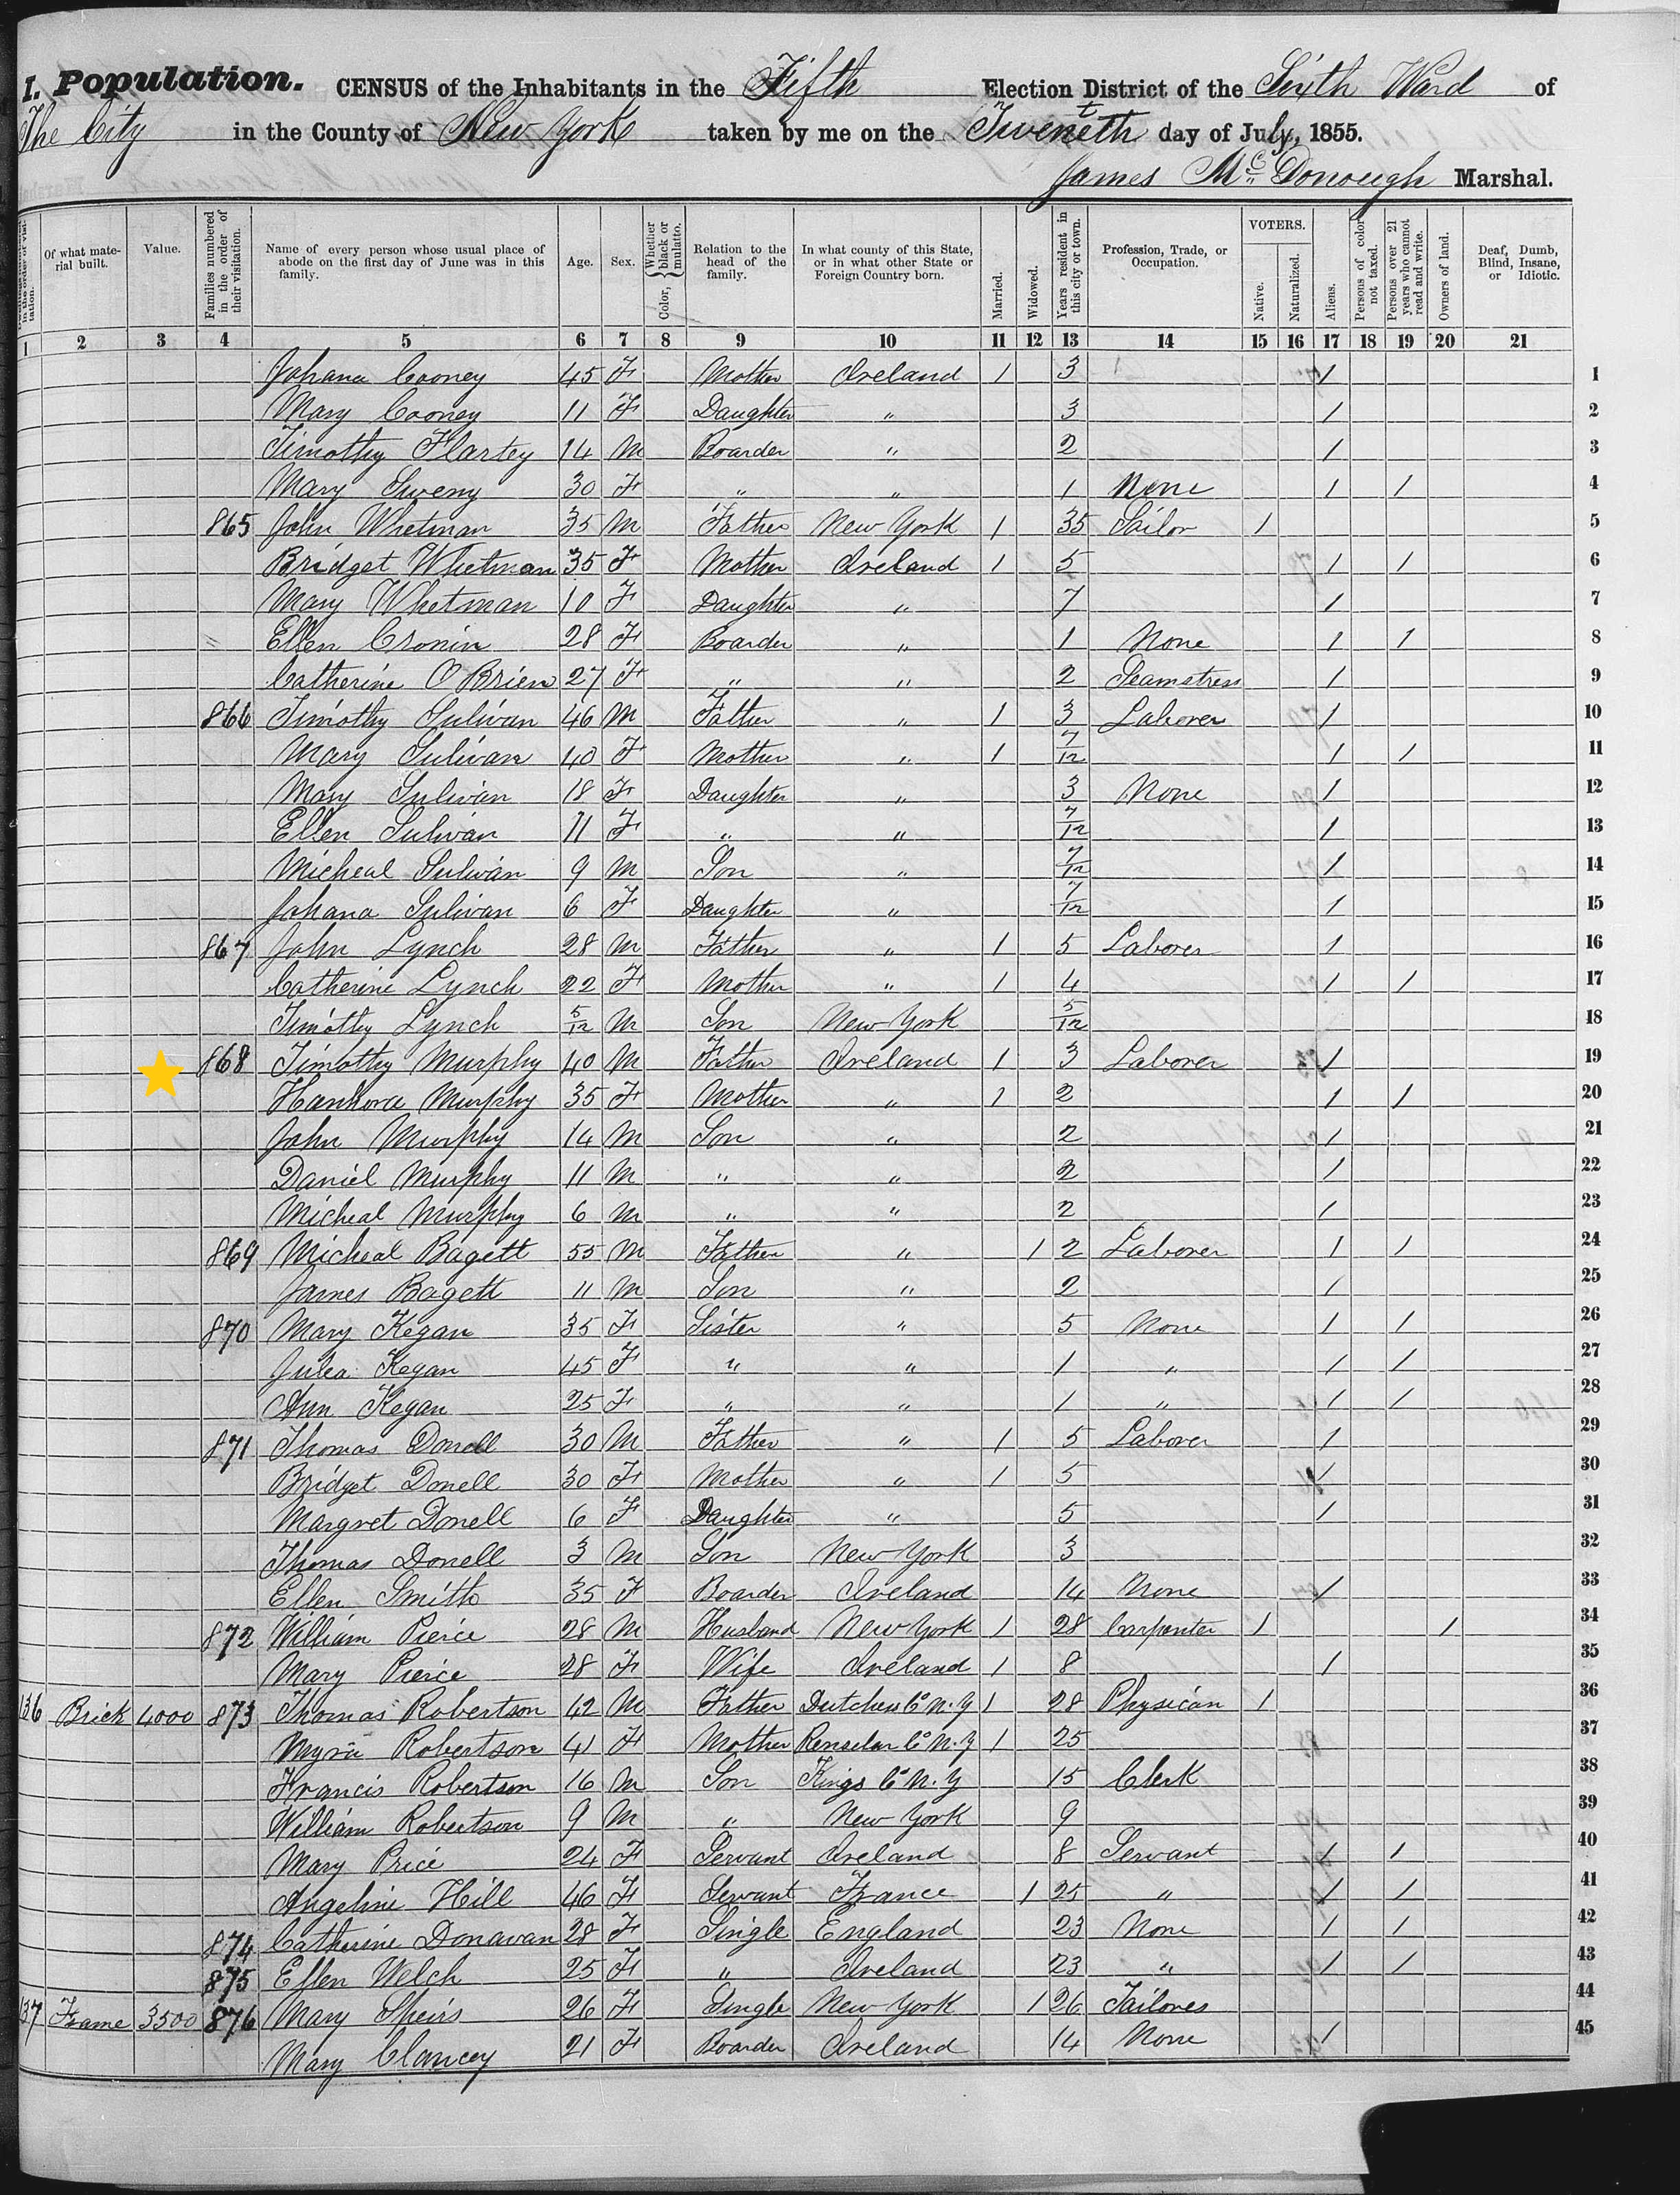 I. Population. CENSUS of the Inhabitants in the Fifth Election District of the Sixth Ward of
The City in the County of New York taken by me on the Tweneth t day of July, 1855.
James Mc Donough Marshal.
Of what material built. Value. Families numbered in the order of their visitation. Name of every person whose usual place of abode on the first day of June was in this family. Age. Sex. Color, Whether black or mulatto. Relation to the head of the family. In what county of this State, or in what other State or Foreign Country born. Married. Widowed. Years resident in this city or town. Profession, Trade, or Occupation. VOTERS. Native. Naturalized. Aliens. Persons of color not taxed. Persons over 21 years who cannot read and write. Owners of land. Deaf, Dumb, Blind, Insane, or Idiotic.
1 2 3 4 5 6 7 8 9 10 11 12 13 14 15 16 17 18 19 20 21
Johana Cooney 45 F Mother Ireland 1 3 1 1
Mary Cooney 11 F Daughter " 3 1 2
Timothy Flartey 14 M Boarder " 2 1 3
Mary Sweny 30 F " " 1 None 1 1 4
865 John Whetman 35 M Father New York 1 35 Sailor 1 5
Bridget Whetman 35 F Mother Ireland 1 5 1 1 6
Mary Whetman 10 F Daughter " 7 1 7
Ellen Cronin 28 F Boarder " 1 None 1 1 8
Catherine O Brien 27 F " " 2 Seamstress 1 9
866 Timothy Sulivan 46 M Father " 1 3 Laborer 1 10
Mary Sulivan 40 F Mother " 1 7/12 1 1 11
Mary Sulivan 18 F Daughter " 3 None 1 12
Ellen Sulivan 11 F " " 7/12 1 13
Micheal Sulivan 9 M Son " 7/12 1 14
Johana Sulivan 6 F Daughter " 7/12 1 15
867 John Lynch 28 M Father " 1 5 Laborer 1 16
Catherine Lynch 22 F Mother " 1 4 1 1 17
Timothy Lynch 5/12 M Son New York 5/12 18
868 Timothy Murphy 40 M Father Ireland 1 3 Laborer 1 19
Hanhora Murphy 35 F Mother " 1 2 1 1 20
John Murphy 14 M Son " 2 1 21
Daniel Murphy 11 M " " 2 1 22
Micheal Murphy 6 M " " 2 1 23
869 Micheal Bagett 55 M Father " 1 2 Laborer 1 1 24
James Bagett 11 M Son " 2 1 25
870 Mary Kegan 35 F Sister " 5 None 1 1 26
Julia Kegan 45 F " " 1 " 1 1 27
Ann Kegan 25 F " " 1 " 1 1 28
871 Thomas Donell 30 M Father " 1 5 Laborer 1 29
Bridget Donell 30 F Mother " 1 5 1 30
Margret Donell 6 F Daughter " 5 1 31
Thomas Donell 3 M Son New York 3 32
Ellen Smith 35 F Boarder Ireland 14 None 1 33
872 William Pierce 28 M Husband New York 1 28 Carpenter 1 1 34
Mary Pierce 28 F Wife Ireland 1 8 1 35
136 Brick 4000 873 Thomas Robertson 42 M Father Dutchess Co N.Y 1 28 Physican 1 36
Myra Robertson 41 F Mother Renselar Co N.Y 1 25 37
Francis Robertson 16 M Son Kings Co N.Y 15 Clerk 38
William Robertson 9 M " New York 9 39
Mary Price 24 F Servant Ireland 8 Servant 1 1 40
Angeline Hill 46 F Servant France 1 25 " 1 1 41
874 Catherine Donavan 28 F Single England 23 None 1 1 42
875 Ellen Welch 25 F " Ireland 23 " 1 1 43
137 Frame 3500 876 Mary Speirs 26 F Single New York 1 26 Tailores 44
Mary Clancey 21 F Boarder Ireland 14 None 1 45